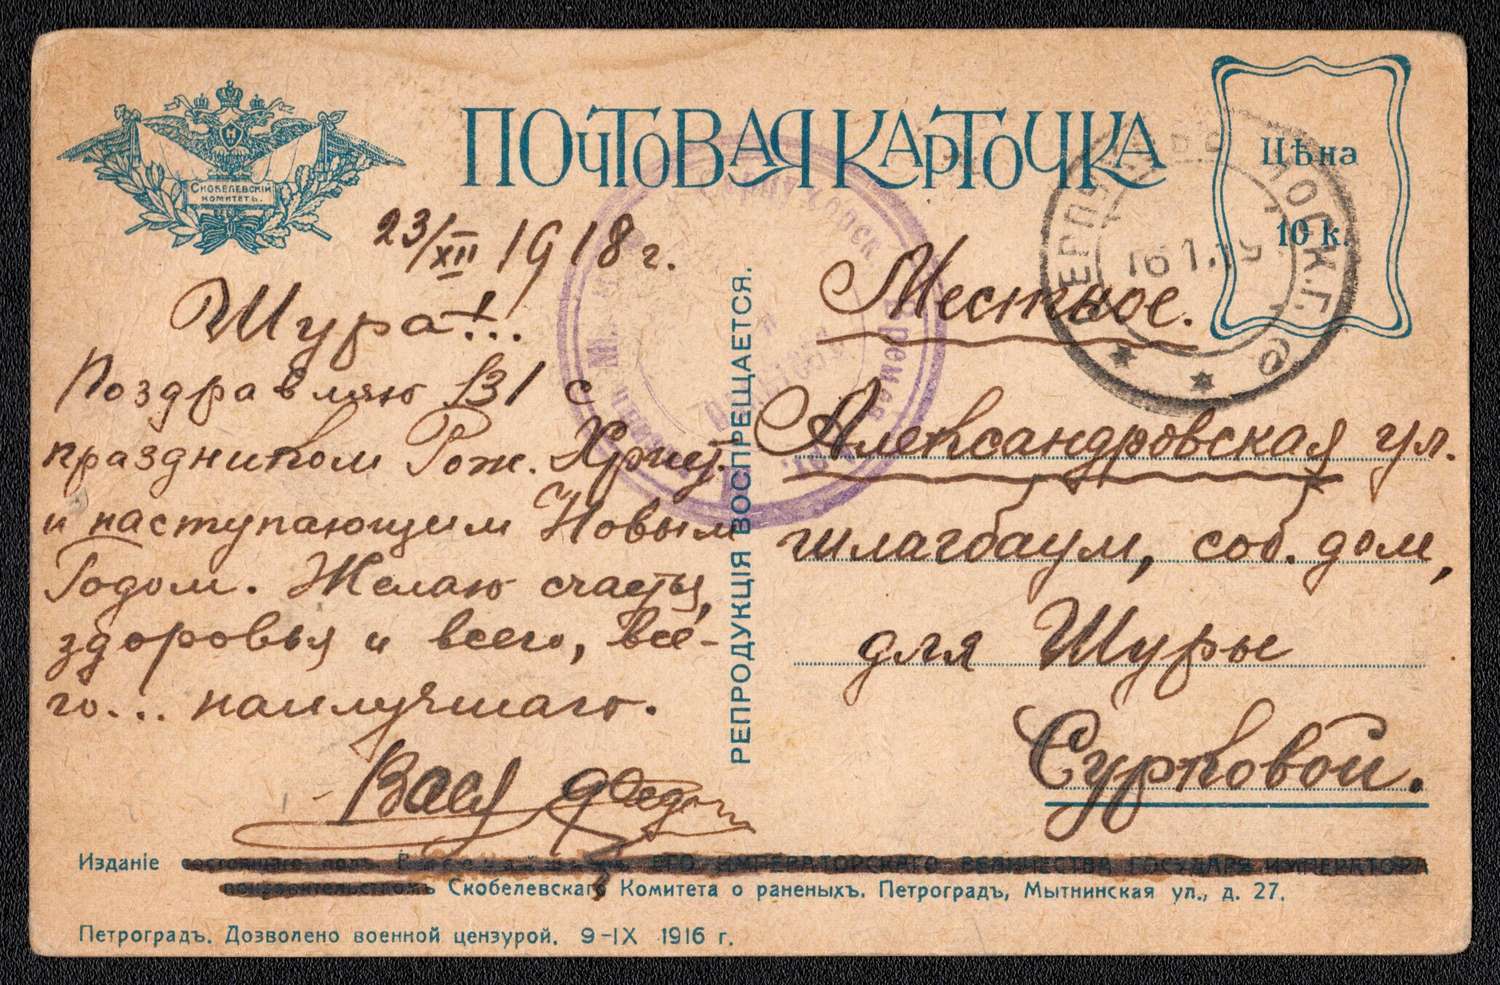 ПОЧТОВАЯ КАРТОЧКА
СКОБЕЛЕВСКІЙ
КОМИТЕТЪ.
Цѣна
10 к.
23/XII 1918 г.
Шура!..
Поздравляю ВЗІ с
праздником Рож. Христ.
и наступающим Новым
Годом. Желаю счастья,
здоровья и всего, все-
го... наилучшаго.
Вася
РЕПРОДУКЦІЯ ВОСПРЕЩАЕТСЯ.
Местное.
Александровская ул.
шлагбаум, соб. дом,
для Шуры
Сурковой.
МОСК.Г.
16 1.19
Изданіе ЕГО ИМПЕРАТОРСКАГО ВЕЛИЧЕСТВА ГОСУДАРЯ ИМПЕРАТОРА
покровительствомъ Скобелевскаго Комитета о раненыхъ. Петроградъ, Мытнинская ул., д. 27.
Петроградъ. Дозволено военной цензурой. 9-IX 1916 г.